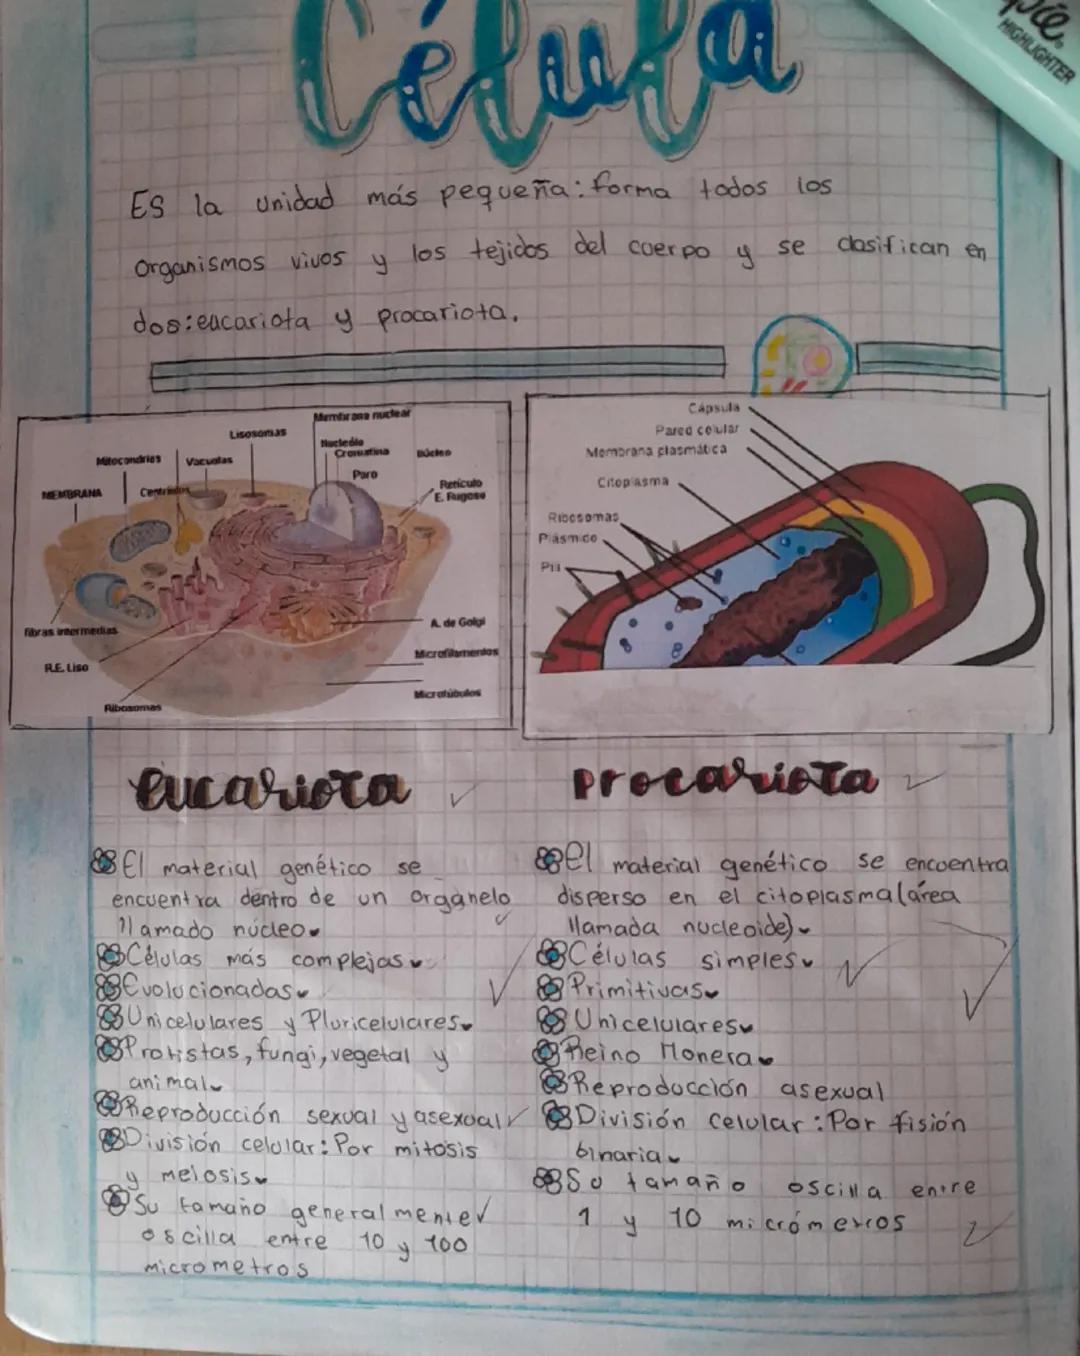 Célula
HIGHLIGHTER
Es la unidad más pequeña: forma todos los
organismos vivos y los tejidos del cuerpo y se clasifican en
dos: eucariota y procariota.
Membrana nuclear
Lisosomas
Nucleólo
Cromatina
Núcleo
Mitocondrias
Vacuolas
Poro
Retículo
E. Rugoso
MEMBRANA
Centriolos
fibras intermedias
A. de Golgi
R.E. Liso
Microfilamentos
Microtúbulos
Ribosomas
Cápsula
Pared celular
Membrana plasmática
Citoplasma
Ribosomas
Plásmido
Pili
eucariota
El material genético se
encuentra dentro de un organelo
llamado núcleo
Células más complejas
Evolucionadas
Unicelulares y Pluricelulares
Protistas, fungi, vegetal y
animal
Reproducción sexual y asexual
División celular: Por mitosis
y meiosis
Su tamaño generalmente
oscilla entre 10 y 100
micrometros
procariota
El material genético se encuentra
disperso en el citoplasma (área
llamada nucleoide)
Células simples
Primitivas
Unicelulares
Reino Monera
Reproducción asexual
División celular: Por fisión
binaria
Su tamaño oscilla entre
1 y 10 micrómetros